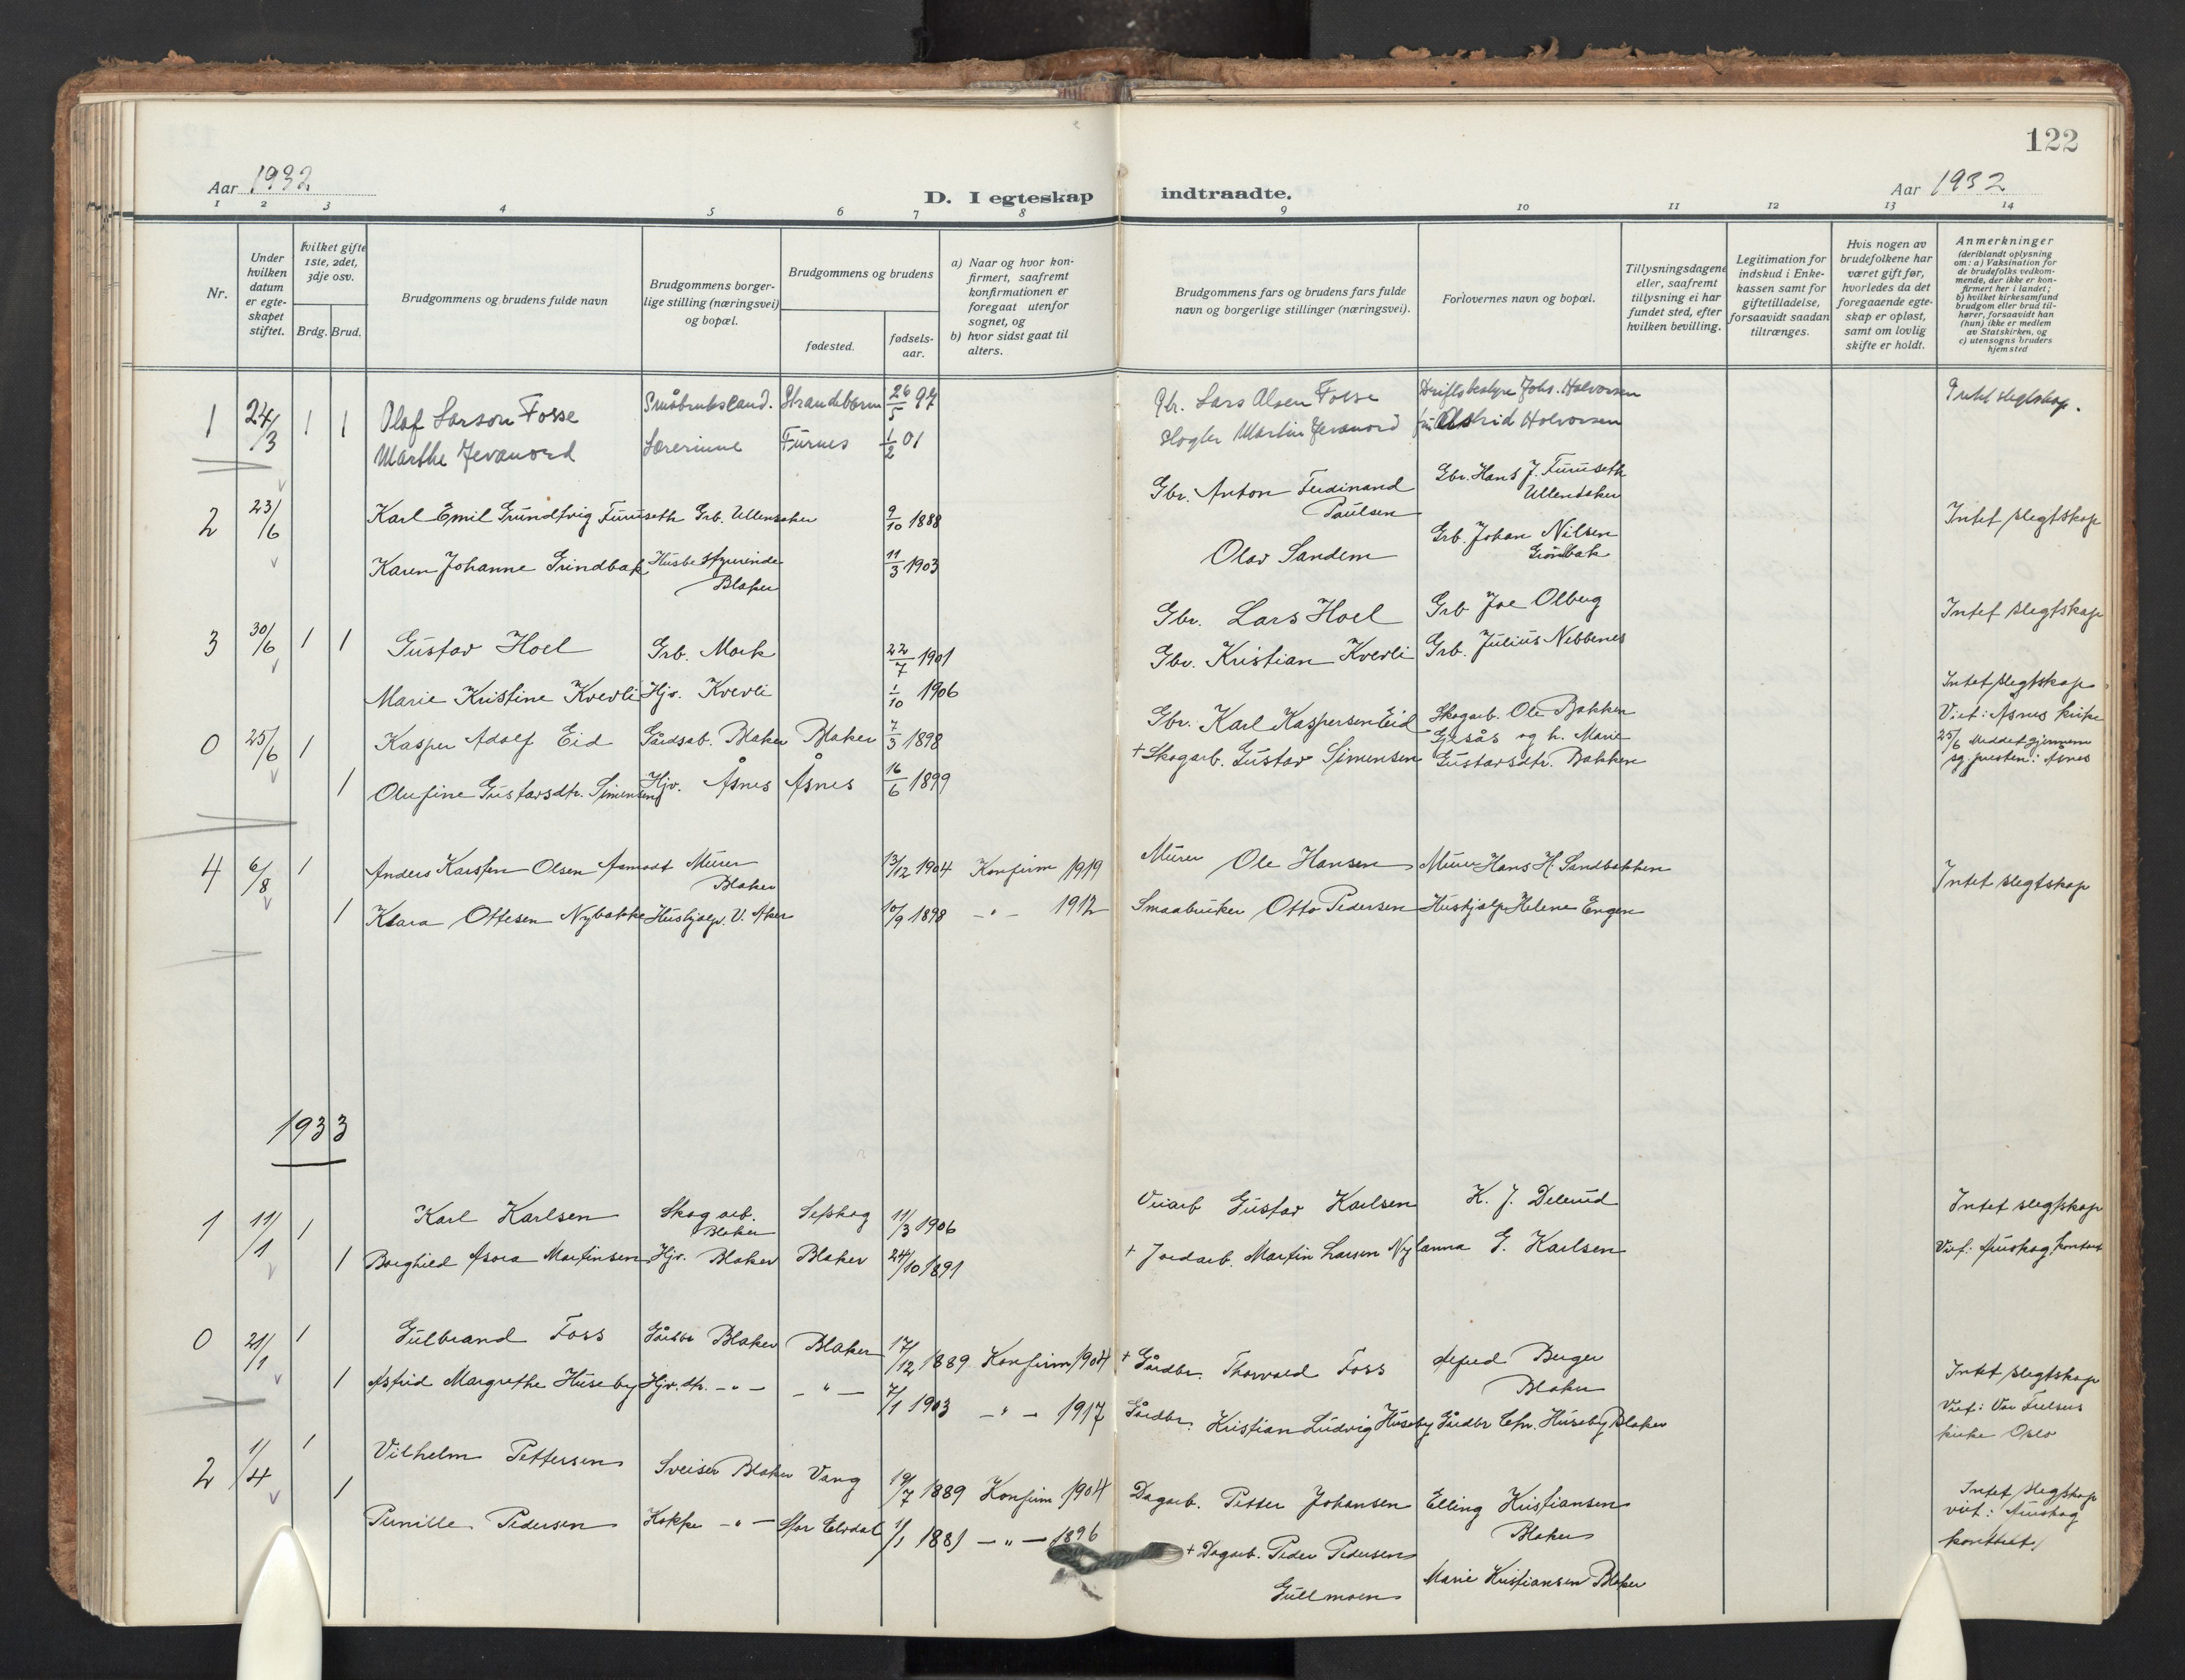 122
Aar 1932
D. I egteskap indtraadte.
Aar 1932
1 2 3 4 5 6 7 8 9 10 11 12 13 14
Nr.
Under hvilken datum er egteskapet stiftet.
Hvilket gifte 1ste, 2det, 3dje osv.
Brdg. Brud.
Brudgommens og brudens fulde navn
Brudgommens borgerlige stilling (næringsvei) og bopæl.
Brudgommens og brudens
fødested.
fødselsaar.
a) Naar og hvor konfirmert, saafremt konfirmationen er foregaat utenfor sognet, og
b) hvor sidst gaat til alters.
Brudgommens fars og brudens fars fulde navn og borgerlige stillinger (næringsvei).
Forlovernes navn og bopæl.
Tillysningsdagene eller, saafremt tillysning ei har fundet sted, efter hvilken bevilling.
Legitimation for indskud i Enkekassen samt for giftetilladelse, forsaavidt saadan tiltrænges.
Hvis nogen av brudefolkene har været gift før, hvorledes da det foregaaende egteskap er opløst, samt om lovlig skifte er holdt.
Anmerkninger
(deriblandt oplysning om: a) Vaksination for de brudefolks vedkommende, der ikke er konfirmert her i landet;
b) hvilket kirkesamfund brudgom eller brud tilhører, forsaavidt han (hun) ikke er medlem av Statskirken, og
c) utensogns bruders hjemsted
1 24/3 1 1 Olaf Larson Fosse Småbruksland. Strandebarm 26/5 97 Gbr. Lars Olsen Fosse Driftsbestyrer Johs. Halvorsen Intet slegtskap.
Marthe Jevanord Lærerinne Furnes 1/2 01 Slagter Martin Jevanord Astrid Halvorsen
2 23/6 Karl Emil Grundtvig Furuseth Grb. Ullensaker 9/10 1888 Gbr. Anton Ferdinand Paulsen Gbr. Hans J. Furuseth Ullensaker Intet slegtskap
Karen Johanne Grindbak Husbestyrerinde Blaker 11/3 1903 Olav Sandem Grb. Johan Nilsen
3 30/6 1 1 Gustav Hoel Grb. Mork 22/7 1901 Gbr. Lars Hoel Grb Joe Olberg Intet slegtskap
Marie Kristine Kverli Hjv. Kverli 1/10 1906 Gbr. Kristian Kverli Grb. Julius Nebbenes
0 25/6 1 Kasper Adolf Eid Gårdsab. Blaker Blaker 7/3 1898 Gbr. Karl Kaspersen Eid Skogarb. Ole Bakken Gjesås og h. Marie Intet slegtskap
Viet: Åsnes kirke
25/6 Meddet gjennem sg. presten i Åsnes
1 Olufine Gustavsdtr. Simensen Hjv. Åsnes Åsnes 16/6 1899 + Skogarb. Gustav Simensen Gustavsdtr. Bakken
4 6/8 1 Anders Karsten Olsen Aamodt Murer Blaker 13/12 1904 Konfirm 1919 Murer Ole Hansen Murer Hans H. Sandbakken Intet slegtskap
1 Klara Ottesen Nybakke Hushjælp. V. Aker 10/9 1898 - " - 1912 Smaabruker Otto Pedersen Hushjelp Helene Engen
1933
1 11/1 1 Karl Karlsen Skogarb. Blaker Setskog 11/3 1906 Veiarb Gustav Karlsen K. J. Delerud Intet slegtskap
1 Borghild Asora Martinsen Hjv. Blaker Blaker 24/10 1891 + Jordarb. Martin Larsen Ny anna G. Karlsen Viet: Aurskog kontor
0 21/1 1 Gulbrand Foss Gårdbr Blaker Blaker 17/12 1889 Konfirm 1904 + Gårdbr. Thorvald Foss Alfred Berger Blaker Intet slegtskap
1 Astrid Margrethe Huseby Hjv. dtr. - " - - " - 7/1 1903 - " - 1917 Gårdbr. Kristian Ludvig Huseby Gårdbr Chr. Huseby Blaker Viet: Vor Frelsers kirke Oslo
2 1/4 1 Vilhelm Pettersen Sveiser Blaker Vang 19/7 1889 Konfirm 1904 Dagarb. Petter Johansen Elling Kristiansen Blaker Intet slegtskap
viet: Aurskog kontoret
1 Pernille Pedersen Kokke - " - Stor Elvdal 1/1 1881 - " - 1896 + Dagarb. Peder Pedersen Gullmoen Marie Kristiansen Blaker